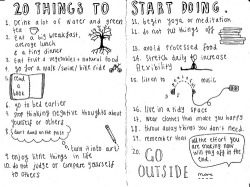 20 THINGS TO START DOING.
1. Drink lots of water and green
tea
2. Eat a big breakfast,
average lunch
& a tiny dinner
3. Eat fruits & vegetables + natural food
4. go for a walk/swim/bike ride
5. read
a
book
6. go to bed earlier
7. stop thinking negative thoughts about
yourself or others
8. don't dwell on the past
turn it into art!
9. enjoy little things in life
10. do not judge or compare yourself
to others
11. begin yoga or meditation
12. do not put things off
13. avoid processed food
14. Stretch daily to increase
flexibility
15. Listen to music
16. live in a tidy space
17. wear clothes that make you happy
18. throw away things you don't need
19. remember that
all the effort you
are making now
will pay off in the
end.
20. GO
OUTSIDE
more